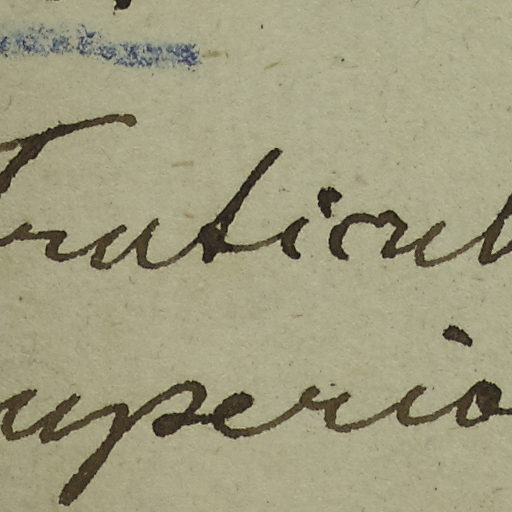 Fruticul
uperio